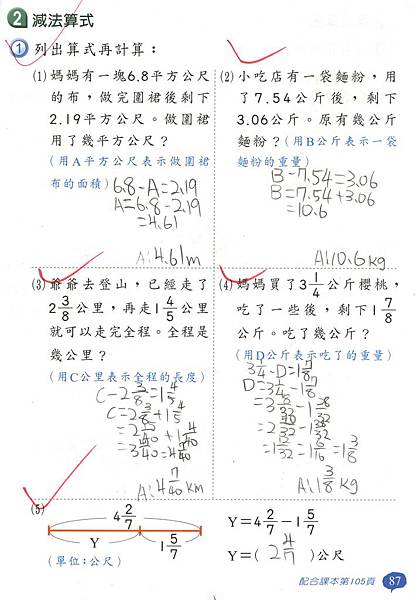 2 減法算式
1 列出算式再計算：
(1) 媽媽有一塊6.8平方公尺
的布，做完圍裙後剩下
2.19平方公尺。做圍裙
用了幾平方公尺？
(用A平方公尺表示做圍裙
布的面積)
6.8-A=2.19
A=6.8-2.19
=4.61
A:4.61m
(2) 小吃店有一袋麵粉，用
了7.54公斤後，剩下
3.06公斤。原有幾公斤
麵粉？(用B公斤表示一袋
麵粉的重量)
B-7.54=3.06
B=7.54+3.06
=10.6
A:10.6kg
(3) 爺爺去登山，已經走了
2 3/8 公里，再走1 4/5 公里
就可以走完全程。全程是
幾公里？
(用C公里表示全程的長度)
C-2 3/8=1 4/5
C=2 3/8+1 4/5
A:4 7/40 km
(4) 媽媽買了3 1/4 公斤櫻桃，
吃了一些後，剩下1 7/8
公斤。吃了幾公斤？
(用D公斤表示吃了的重量)
3 1/4-D=1 7/8
D=3 1/4-1 7/8
=1 12/32=1 6/16=1 3/8
A:1 3/8 kg
(5)
4 2/7
Y
1 5/7
(單位：公尺)
Y=4 2/7-1 5/7
Y=( 2 4/7 )公尺
配合課本第105頁
87